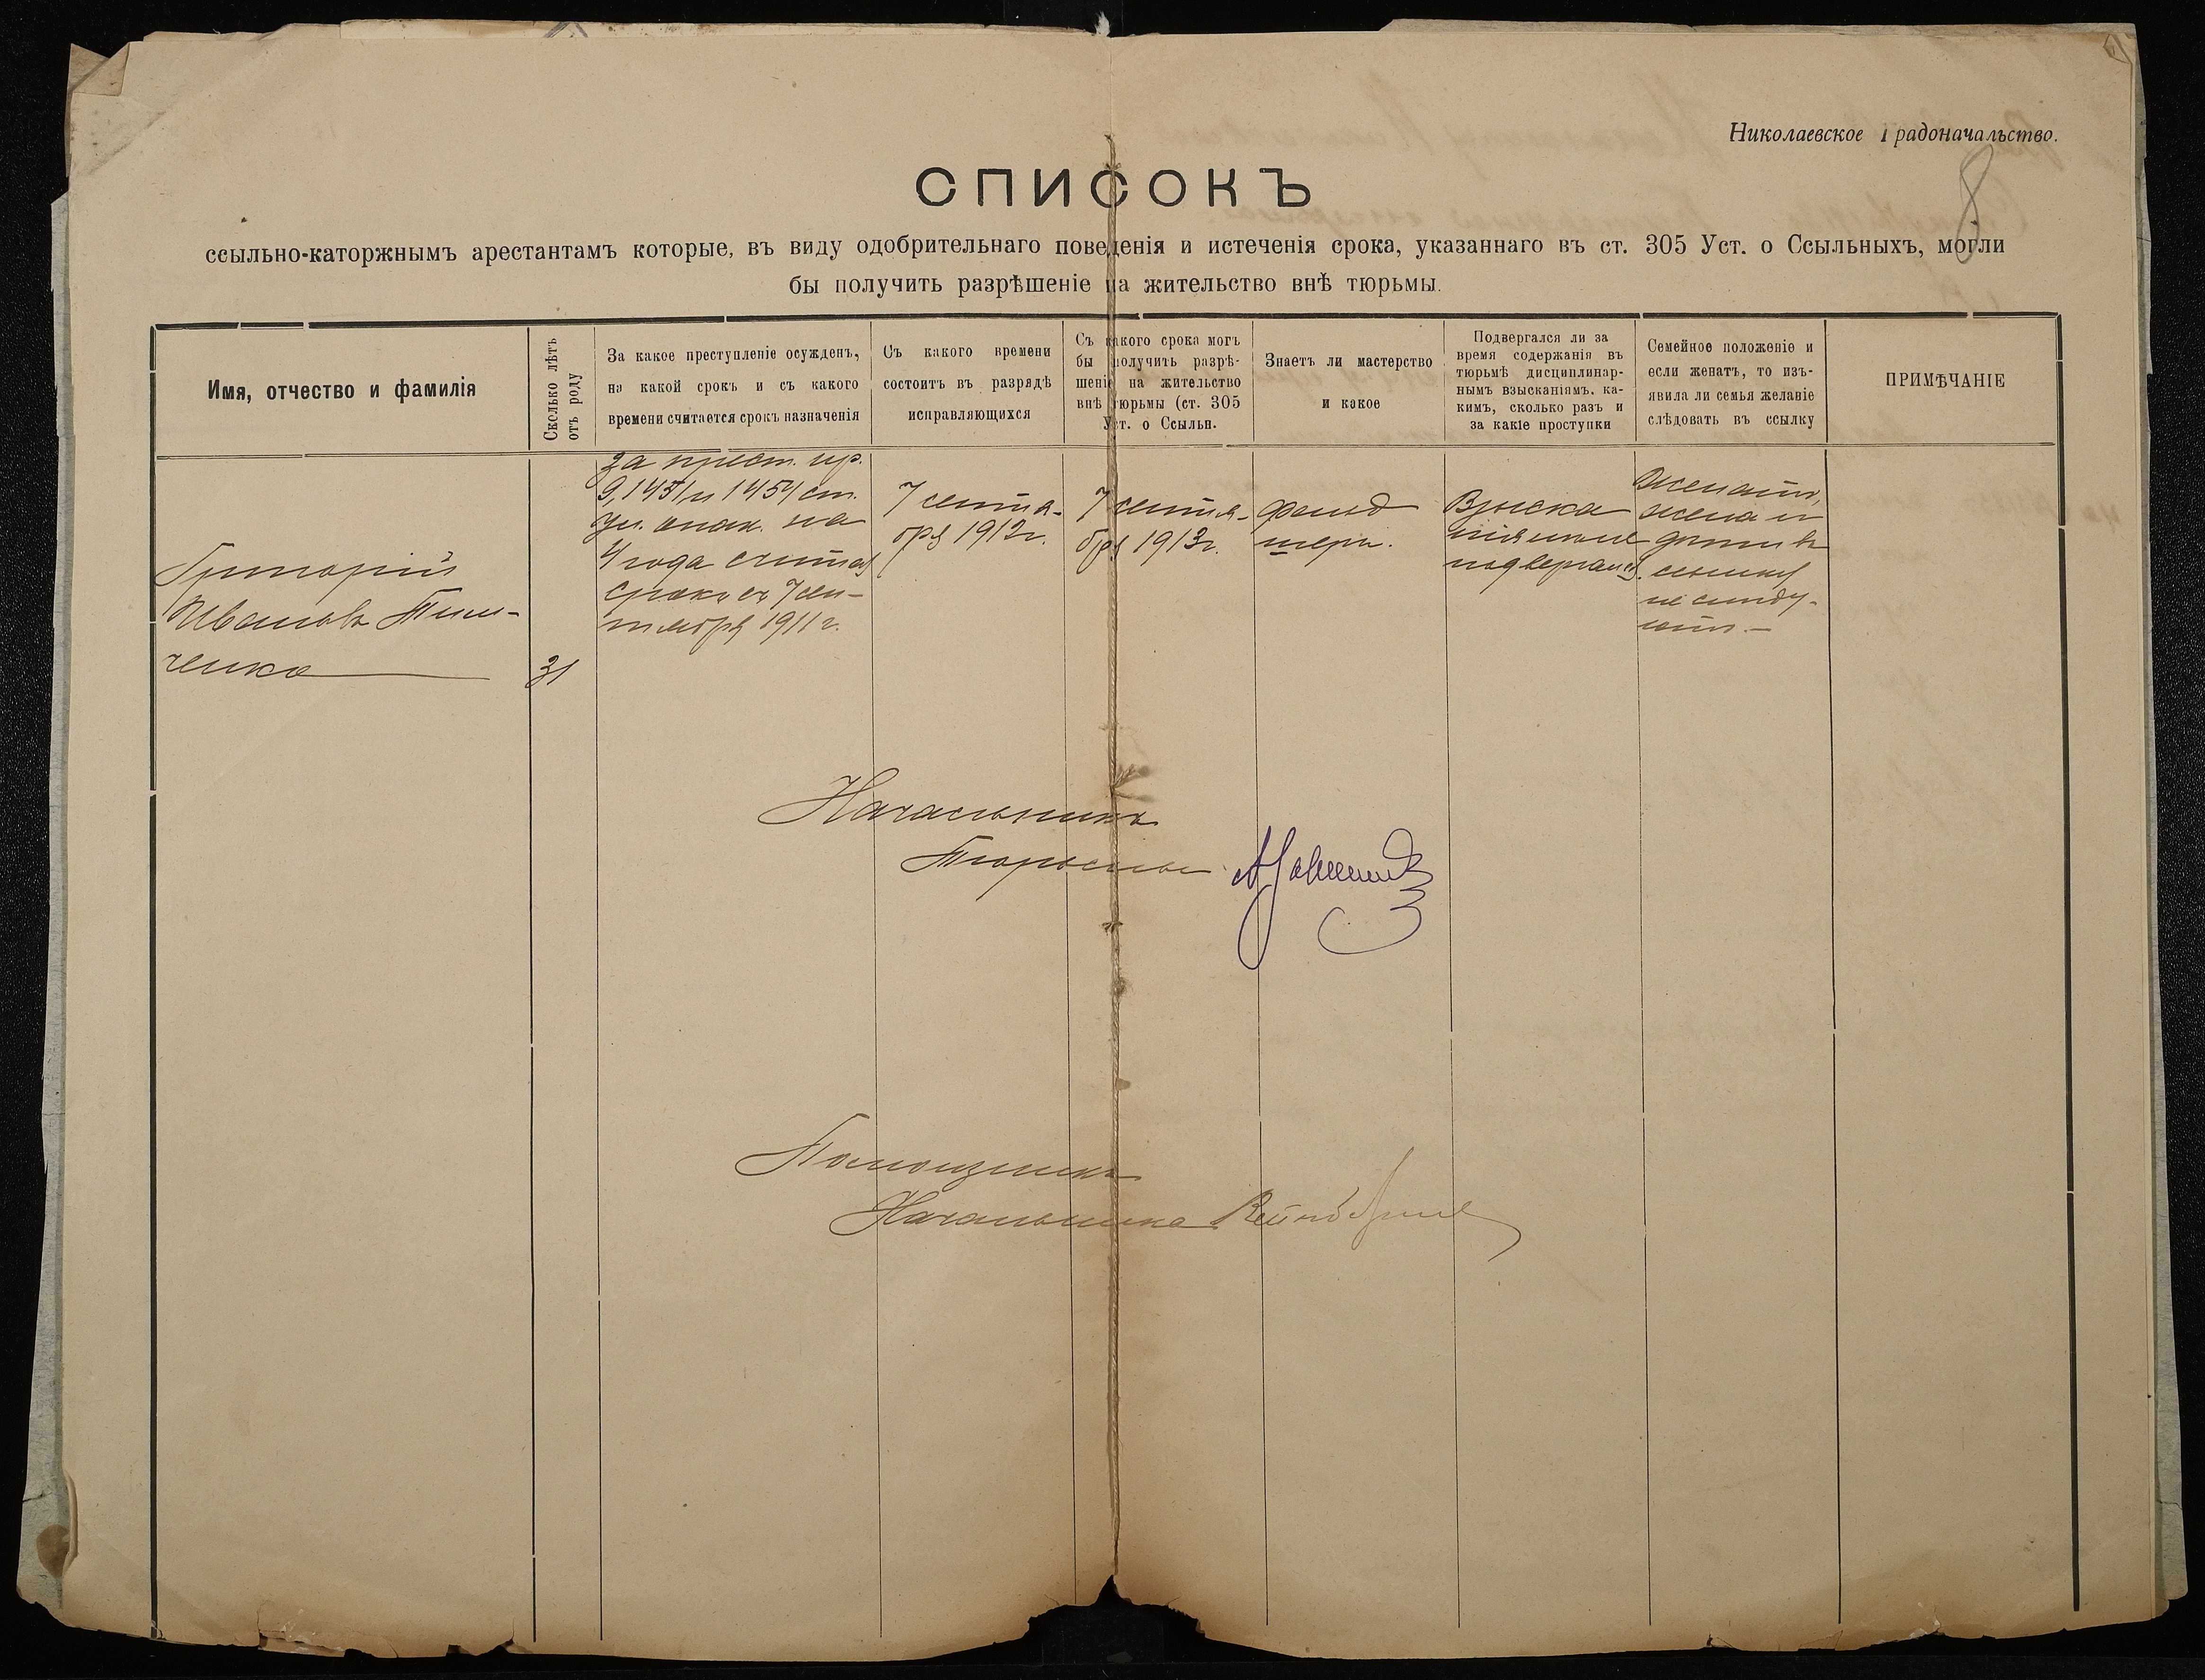 Николаевское Градоначальство.
8
СПИСОКЪ
ссыльно-каторжнымъ арестантамъ которые, въ виду одобрительнаго поведенія и истеченія срока, указаннаго въ ст. 305 Уст. о Ссыльныхъ, могли
бы получить разрѣшеніе на жительство внѣ тюрьмы.
Имя, отчество и фамилія
Сколько лѣтъ
отъ роду
За какое преступленіе осужденъ,
на какой срокъ и съ какого
времени считается срокъ назначенія
Съ какого времени
состоитъ въ разрядѣ
исправляющихся
Съ какого срока могъ
бы получить разрѣ-
шеніе на жительство
внѣ тюрьмы (ст. 305
Уст. о Ссыльн.
Знаетъ ли мастерство
и какое
Подвергался ли за
время содержанія въ
тюрьмѣ дисциплинар-
нымъ взысканіямъ, ка-
кимъ, сколько разъ и
за какіе проступки
Семейное положеніе и
если женатъ, то изъ-
явила ли семья желаніе
слѣдовать въ ссылку
ПРИМѢЧАНІЕ
Григорій
Ивановъ Тим-
ченко
31
за прест. пр.
9, 1451 и 1454 ст.
ул. о нак. на
4 года считая
срокъ съ 7 сен-
тября 1911 г.
7 сентя-
бря 1912 г.
7 сентя-
бря 1913 г.
фельд
шеръ.
Взыска
ніямъ не
подвергался.
Женатъ,
жена и
дѣти въ
ссылку
не слѣду-
ютъ.—
Начальникъ
Тюрьмы
Помощникъ
Начальника